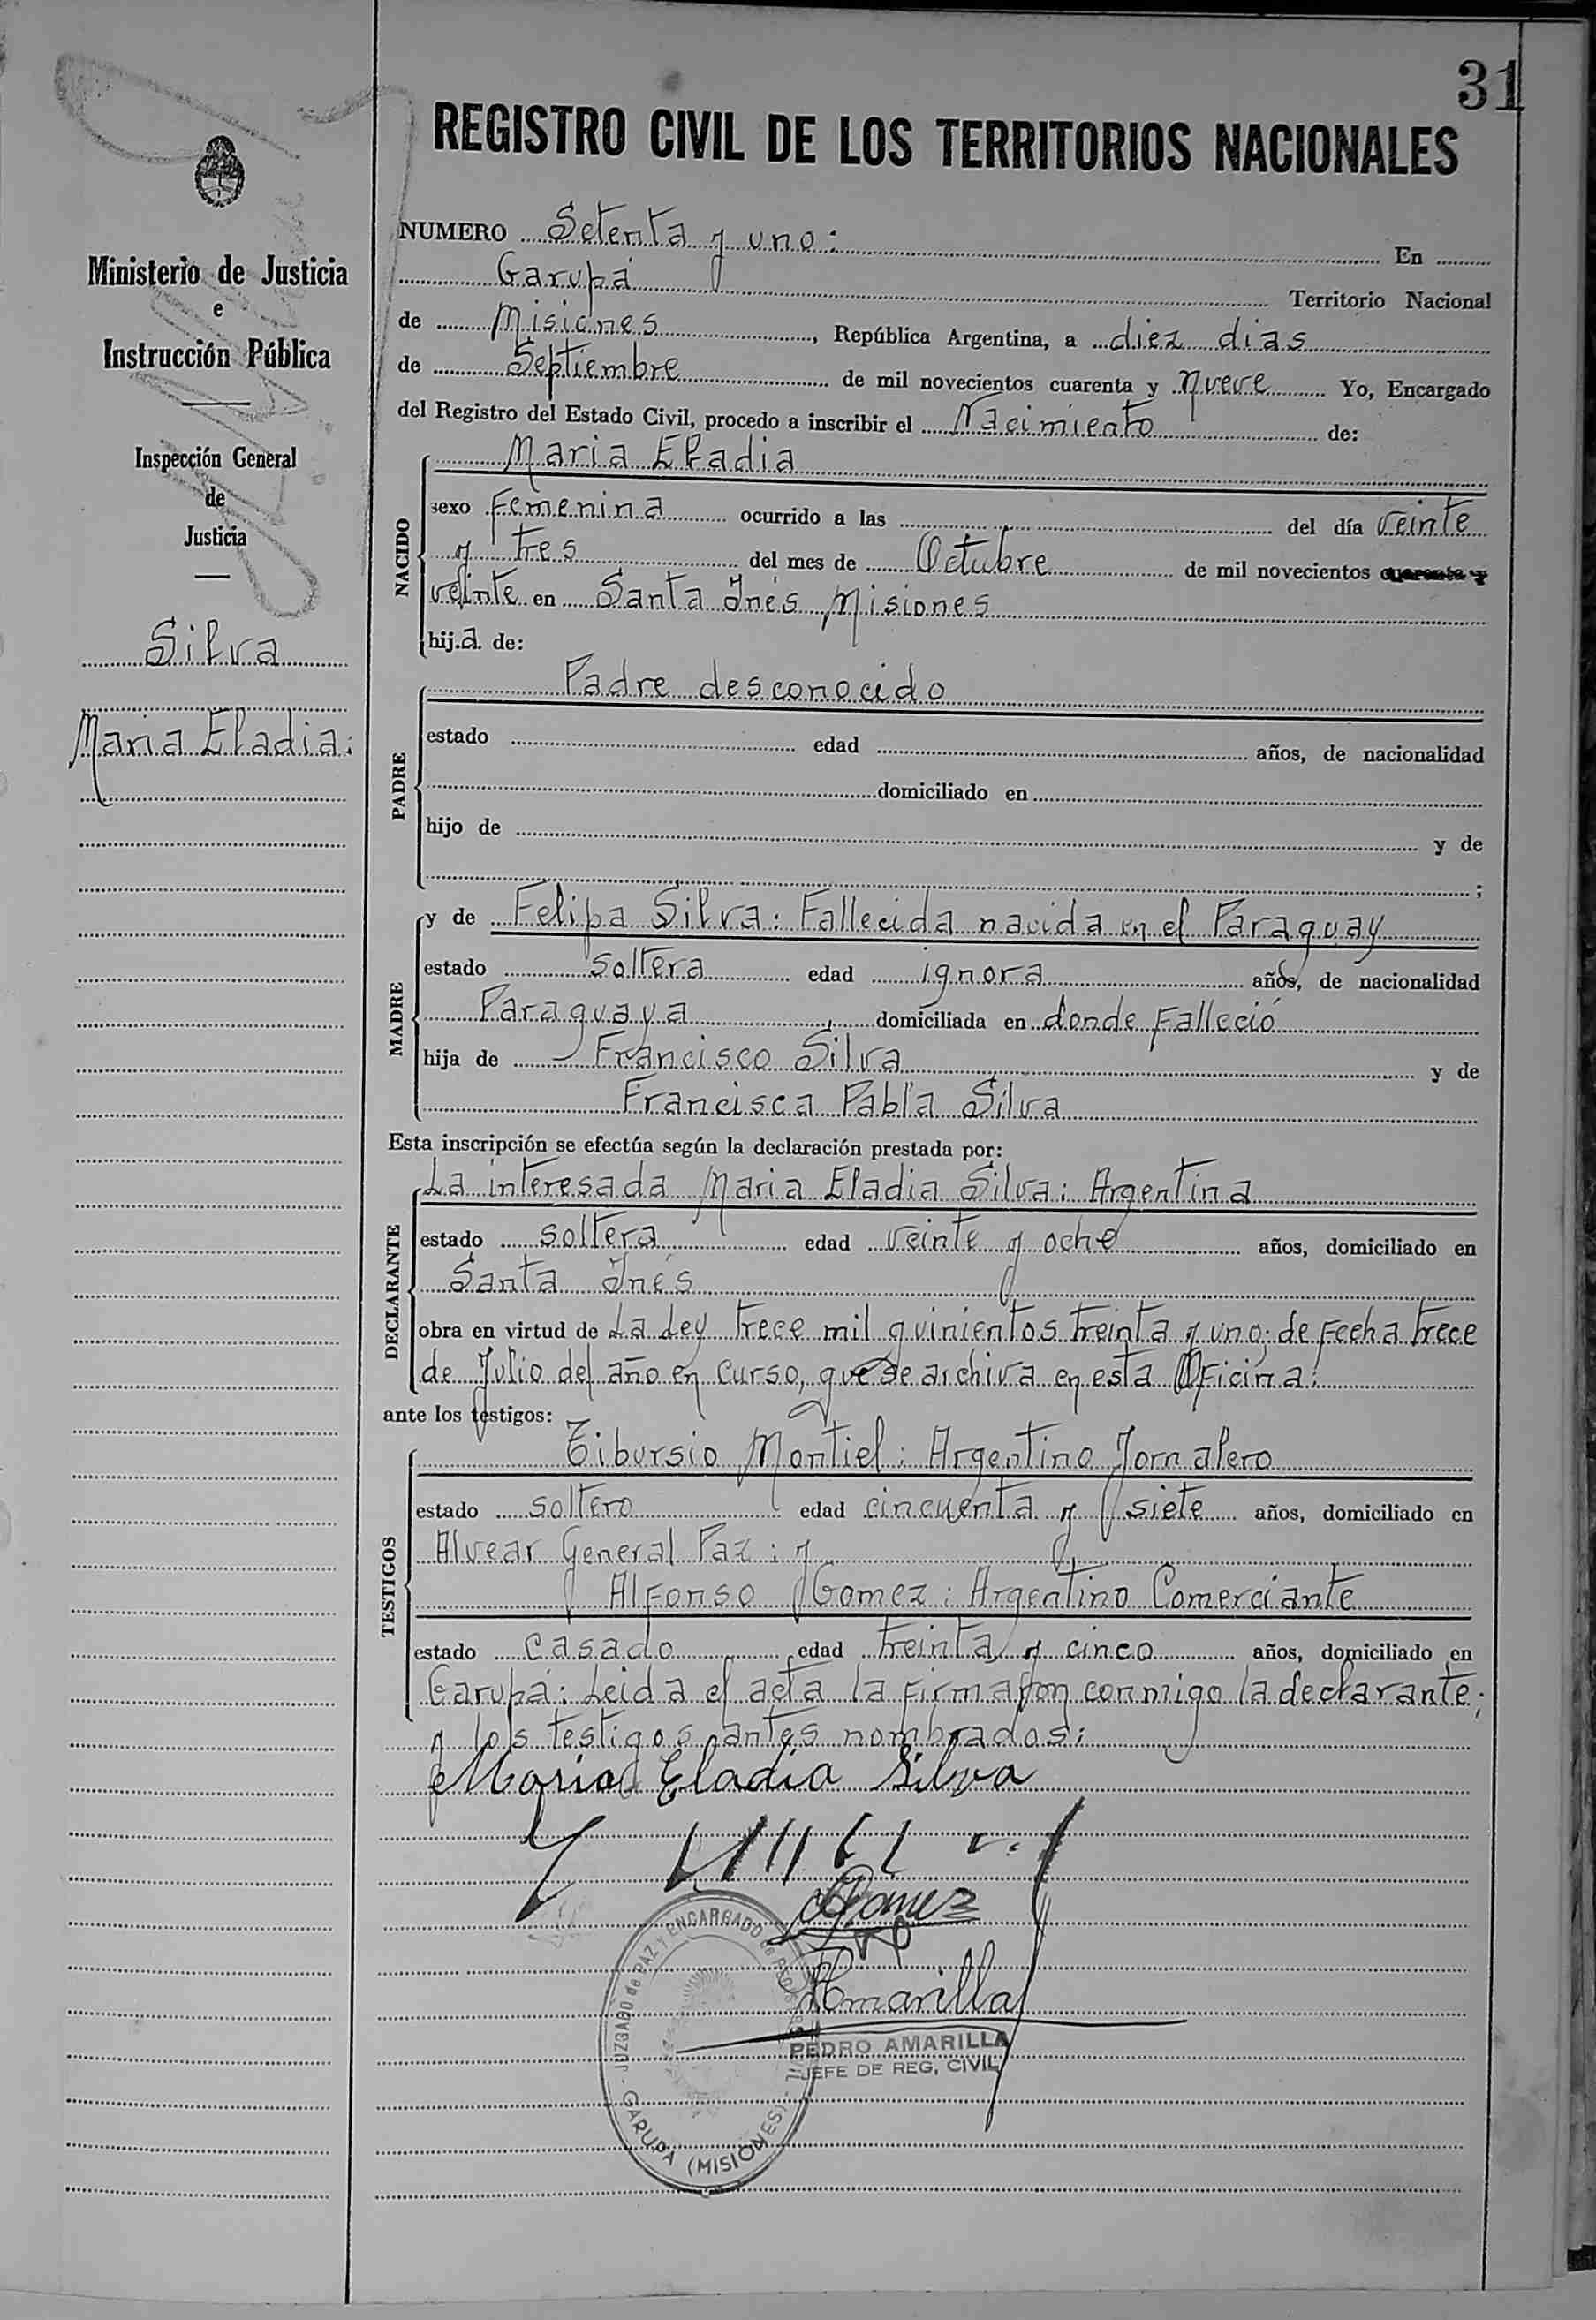 31
REGISTRO CIVIL DE LOS TERRITORIOS NACIONALES
Ministerio de Justicia
e
Instrucción Pública
Inspección General
de
Justicia
Silva
Maria Eladia:
NUMERO Setenta y uno: En
Garupá Territorio Nacional
de Misiones, República Argentina, a diez dias
de Septiembre de mil novecientos cuarenta y nueve Yo, Encargado
del Registro del Estado Civil, procedo a inscribir el Nacimiento de:
NACIDO
Maria Eladia
sexo Femenina ocurrido a las del día veinte
y tres del mes de Octubre de mil novecientos cuarenta y
veinte en Santa Inés Misiones
hija de:
PADRE
Padre desconocido
estado edad años, de nacionalidad
domiciliado en
hijo de y de
;
MADRE
y de Felipa Silva: Fallecida nacida en el Paraguay
estado soltera edad ignora años, de nacionalidad
Paraguaya domiciliada en donde Falleció
hija de Francisco Silva y de
Francisca Pabla Silva
Esta inscripción se efectúa según la declaración prestada por:
DECLARANTE
La interesada Maria Eladia Silva: Argentina
estado soltera edad veinte y ocho años, domiciliado en
Santa Inés
obra en virtud de La Ley trece mil quinientos treinta y uno; de Fecha trece
de Julio del año en curso, que se archiva en esta Oficina:
ante los testigos:
TESTIGOS
Tibursio Montiel: Argentino Jornalero
estado soltero edad cincuenta y siete años, domiciliado en
Alvear General Paz: y
Alfonso Gomez: Argentino Comerciante
estado casado edad treinta y cinco años, domiciliado en
Garupá: Leida el acta la firmaron conmigo la declarante;
y los testigos antes nombrados:
Maria Eladia Silva
AGomez
PAmarilla
PEDRO AMARILLA
JEFE DE REG. CIVIL
JUZGADO de PAZ y ENCARGADO de
GARUPA (MISIONES)